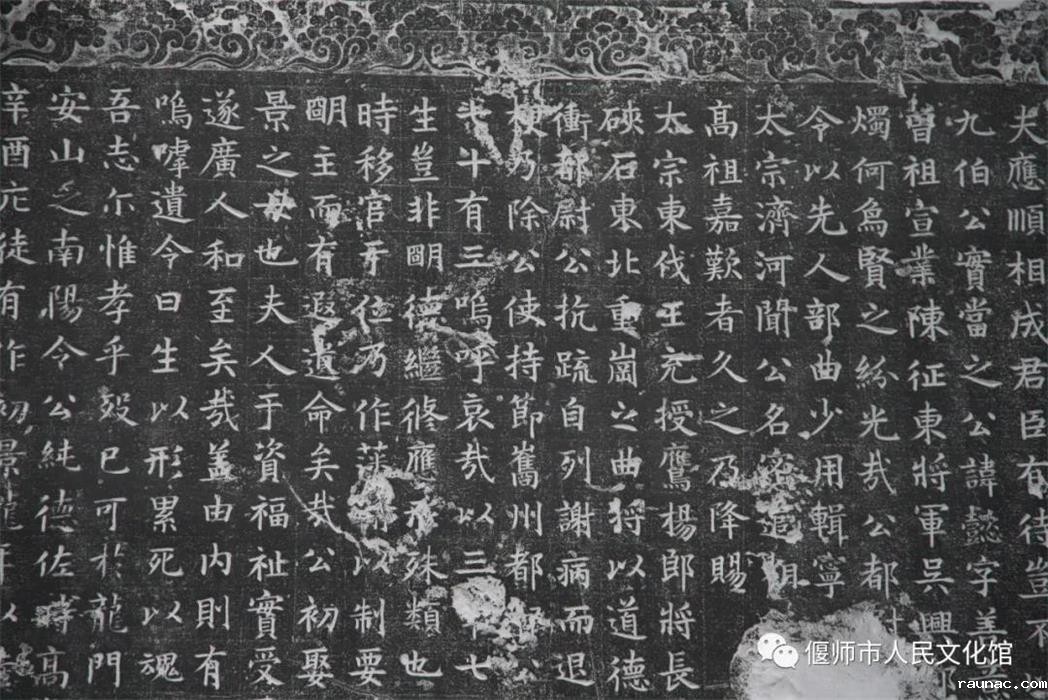 夫應順相成君臣有待豈不
九伯公實當之公諱懿字善
曾祖宣業陳征東將軍吳興郡
燭何為賢之紛光哉公都
令以先人部曲少用輯寧
太宗濟河聞公名密追
高祖嘉歎者久之乃降賜
太宗東伐王充授鷹楊郎將長
硤石東北重崗之曲捋以道德
衝都尉公抗疏自列謝病而退
乃除公使持節巂州都督公
斗有三嗚呼哀哉以三七
生豈非明德繼脩應殊類也
時移官于位乃作以制要
明主而有遐遺命矣哉公初娶
景之女也夫人于資福祉實受
遂廣人和至矣哉蓋由内則有
嗚嘑遺令曰生以形累死以魂
吾志尒惟孝乎殁已可於龍門
安山之南陽令公純德佐時高
辛酉元徒有作景龍年以
偃师市人民文化馆
raunac.com